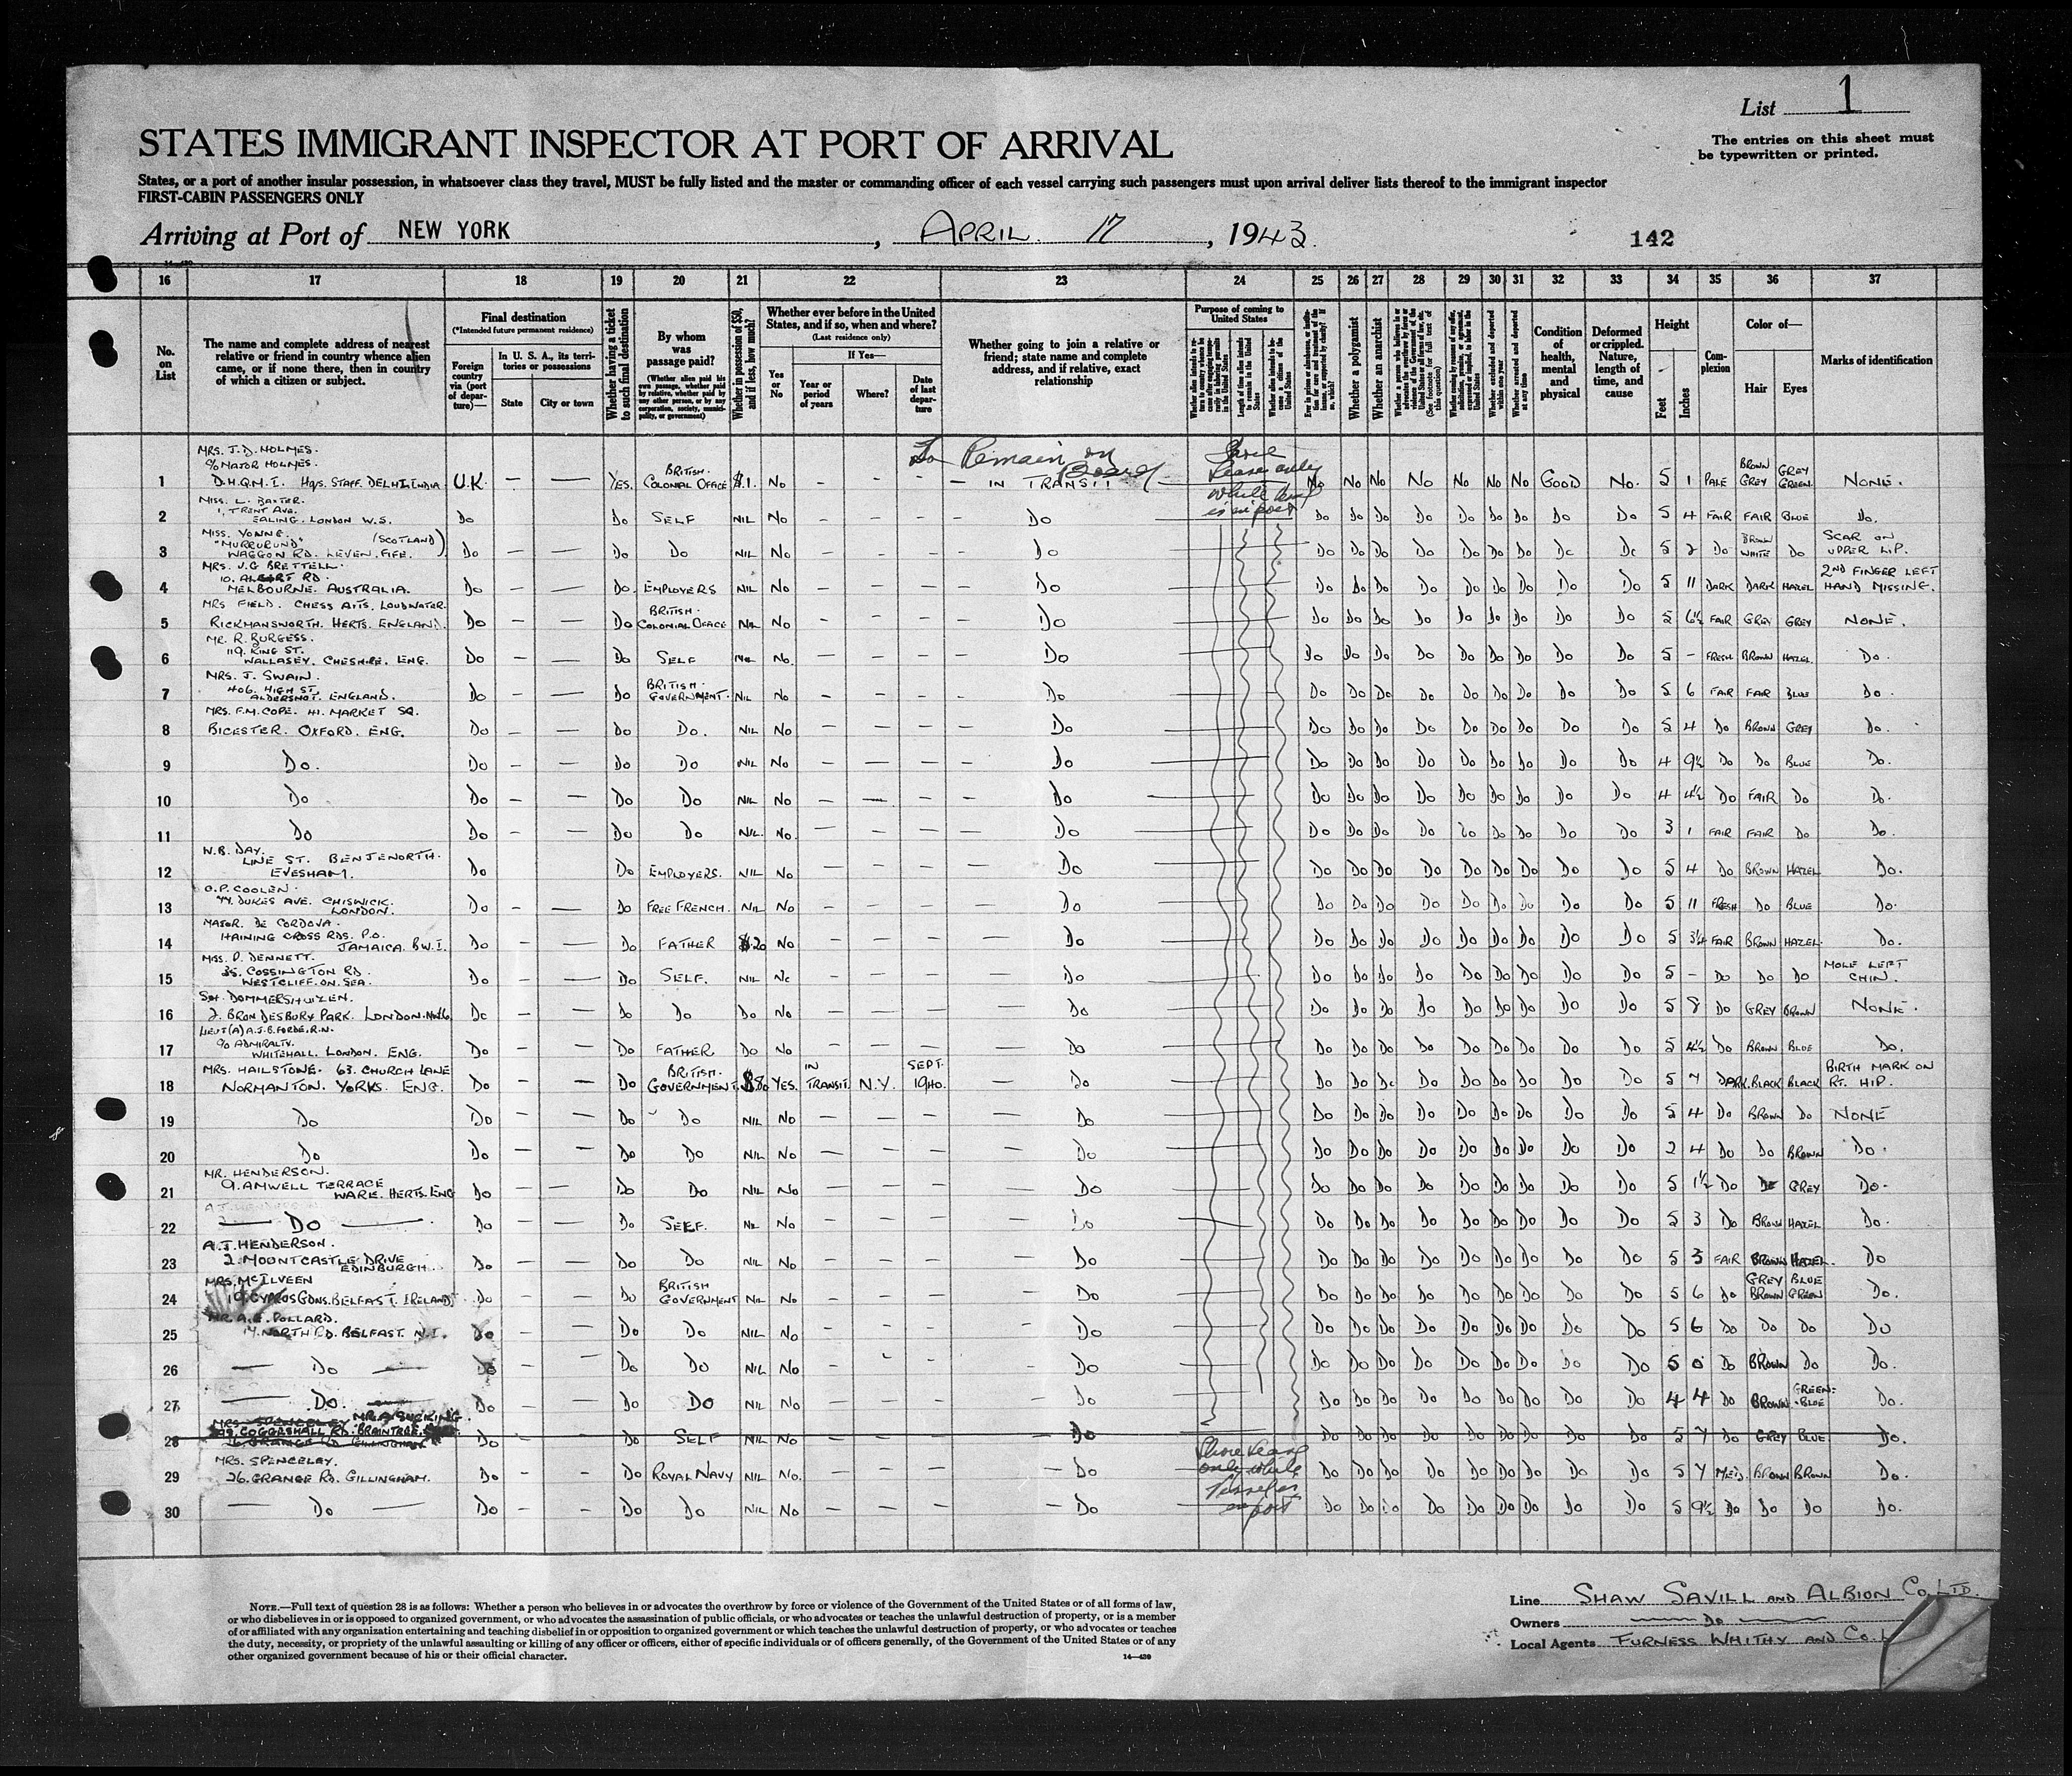 List 1
The entries on this sheet must
be typewritten or printed.
STATES IMMIGRANT INSPECTOR AT PORT OF ARRIVAL
States, or a port of another insular possession, in whatsoever class they travel, MUST be fully listed and the master or commanding officer of each vessel carrying such passengers must upon arrival deliver lists thereof to the immigrant inspector
FIRST-CABIN PASSENGERS ONLY
Arriving at Port of NEW YORK, APRIL 17, 1943.
142
16 17 18 19 20 21 22 23 24 25 26 27 28 29 30 31 32 33 34 35 36 37
No. on List
The name and complete address of nearest relative or friend in country whence alien came, or if none there, then in country of which a citizen or subject.
Final destination
(*Intended future permanent residence)
Foreign country via (port of departure)—
In U. S. A., its territories or possessions
State
City or town
Whether having a ticket to such final destination
By whom was passage paid?
(Whether alien paid his own passage, whether paid by relative, whether paid by any other person, or by any corporation, society, municipality, or government)
Whether in possession of $50, and if less, how much?
Whether ever before in the United States, and if so, when and where?
(Last residence only)
Yes or No
If Yes—
Year or period of years
Where?
Date of last departure
Whether going to join a relative or friend; state name and complete address, and if relative, exact relationship
Purpose of coming to United States
Length of time alien intends to remain in the United States
Whether a polygamist
Whether an anarchist
Whether excluded and deported within one year
Whether arrested and deported at any time
Condition of health, mental and physical
Deformed or crippled. Nature, length of time, and cause
Height
Feet
Inches
Complexion
Color of—
Hair
Eyes
Marks of identification
To Remain on Board
Shore Leave only while
is in port
1 MRS. J.D. HOLMES. C/O MAJOR HOLMES. D.H.Q.M.I. HQS. STAFF. DELHI. INDIA U.K. — — YES. BRITISH COLONIAL OFFICE $.1. No - - - - IN TRANSIT No No No No No No No GOOD No. 5 1 PALE BROWN GREY GREY GREEN NONE.
2 MISS. L. BAXTER. 1, TRENT AVE. EALING. LONDON W.5. Do Do SELF NIL No - - - - Do Do Do Do Do Do Do Do Do Do 5 4 FAIR FAIR BLUE Do.
3 MISS. YONNE. "MURRURUND" (SCOTLAND) WAGGON RD. LEVEN. FIFE. Do — — Do Do NIL No - - - - Do Do Do Do Do Do Do Do Do Do 5 2 Do BROWN WHITE Do SCAR ON UPPER LIP.
4 MRS. V.G BRETTELL. 10. ALBERT RD. MELBOURNE. AUSTRALIA. Do — — Do. EMPLOYERS NIL No - - - - Do Do Do Do Do Do Do Do Do Do 5 11 DARK DARK HAZEL 2ND FINGER LEFT HAND MISSING.
5 MRS FIELD. LOUDWATER. RICKMANSWORTH. HERTS. ENGLAND. Do — — Do BRITISH. COLONIAL OFFICE NIL No - - - - Do Do Do Do Do Do Do Do Do Do 5 6½ FAIR GREY GREY NONE.
6 MR. R. BURGESS. 119. KING ST. WALLASEY. CHESHIRE. ENG. Do — — Do SELF NIL No. - - - - Do Do Do Do Do Do Do Do Do Do 5 - FRESH BROWN HAZEL Do.
7 MRS. J. SWAIN. 406. HIGH ST. ALDERSHOT. ENGLAND. Do — — Do BRITISH. GOVERNMENT. NIL No - - - - Do Do Do Do Do Do Do Do Do Do 5 6 FAIR FAIR BLUE Do.
8 MRS. F.M. COPE. 41. MARKET SQ. BICESTER. OXFORD. ENG. Do — — Do Do. NIL No - - - - Do Do Do Do Do Do Do Do Do Do 5 4 Do BROWN GREY Do.
9 Do. Do — — Do Do NIL No - - - - Do Do Do Do Do Do Do Do Do Do 4 9½ Do Do BLUE Do.
10 Do Do — — Do Do NIL No - - - - Do Do Do Do Do Do Do Do Do Do 4 4½ Do FAIR Do Do.
11 Do Do — — Do Do NIL. No. - - - - Do Do Do Do Do Do Do Do Do Do 3 1 FAIR FAIR Do Do.
12 W.B. DAY. LINE ST. BENJENORTH. EVESHAM. Do Do EMPLOYERS. NIL No - - - - Do Do Do Do Do Do Do Do Do Do 5 4 Do BROWN HAZEL Do.
13 O.P. COOLEN. 44. DUKES AVE. CHISWICK. LONDON. Do — — Do FREE FRENCH. NIL No - - - - Do Do Do Do Do Do Do Do Do Do 5 11 FRESH Do BLUE Do.
14 MAJOR. DE CORDOVA. HAINING CROSS RDS. P.O. JAMAICA. B.W.I. Do — — Do FATHER $.20 No - - - - Do Do Do Do Do Do Do Do Do Do 5 3¼ FAIR BROWN HAZEL. Do.
15 MISS. P. DENNETT. 35. COSSINGTON RD. WESTCLIFF. ON. SEA. Do — — Do SELF. NIL No - - - - Do Do Do Do Do Do Do Do Do Do 5 - Do Do Do MOLE LEFT CHIN.
16 DOMMERSHUIZEN. 2. BRONDESBURY PARK. LONDON. N.W.6. Do — — Do Do Do No - - - Do Do Do Do Do Do Do Do Do Do 5 8 Do GREY BROWN NONE.
17 LIEUT (A) A.J.B. FORDE. R.N. C/O ADMIRALTY. WHITEHALL. LONDON. ENG. Do — — Do FATHER Do No - - - - Do Do Do Do Do Do Do Do Do Do 5 4½ Do BROWN BLUE Do.
18 MRS. HAILSTONE. 63. CHURCH LANE NORMANTON. YORKS. ENG. Do — — Do BRITISH. GOVERNMENT. $80 YES. IN TRANSIT. N.Y. SEPT. 1940. — Do Do Do Do Do Do Do Do Do Do 5 7 DARK. BLACK BLACK BIRTH MARK ON RT. HIP.
19 Do Do — — Do Do NIL No - - - - Do Do Do Do Do Do Do Do Do Do 5 4 Do BROWN Do NONE
20 Do Do — — Do Do NIL No - - - - Do Do Do Do Do Do Do Do Do Do 2 4 Do Do BROWN Do.
21 MR. HENDERSON. 9. AMWELL TERRACE WARE. HERTS. ENG Do — — Do Do NIL No - - - - Do Do Do Do Do Do Do Do Do Do 5 1½ Do Do GREY Do.
22 — Do — Do — — Do SELF. NIL No - - - - Do Do Do Do Do Do Do Do Do Do 5 3 Do BROWN HAZEL Do.
23 A.J. HENDERSON. 2. MOUNTCASTLE DRIVE EDINBURGH. Do — — Do Do NIL No - - - - Do Do Do Do Do Do Do Do Do Do 5 3 FAIR BROWN HAZEL. Do
24 MRS. McILVEEN CYPROS GDNS. BELFAST. IRELAND Do — — Do BRITISH GOVERNMENT NIL No - - - - Do Do Do Do Do Do Do Do Do Do 5 6 Do GREY BROWN BLUE GREEN Do.
25 MR. A.E. POLLARD. 14. NORTH RD. BELFAST. N.I. Do — — Do Do NIL No - - - - Do Do Do Do Do Do Do Do Do Do 5 6 Do Do Do Do
26 — Do — Do — — Do Do NIL No - - - - Do Do Do Do Do Do Do Do Do Do 5 0 Do BROWN Do Do.
27 — Do. — Do — — Do Do NIL No - - - - Do Do Do Do Do Do Do Do Do Do 4 4 Do BROWN GREEN-BLUE Do.
28 MRS. SPENCELEY MR. A. SUCKING. COGGESHALL RD. BRAINTREE. Do Do SELF NIL No - - - - Do Do Do Do Do Do Do Do Do Do 5 7 Do GREY BLUE Do.
Shore Leave only while Vessel is in port
29 MRS. SPENCELEY. 26. GRANGE RD. GILLINGHAM. Do — — Do ROYAL NAVY NIL No. - - - - Do Do Do Do Do Do Do Do Do Do 5 7 MED. BROWN BROWN Do.
30 — Do — Do — — Do Do NIL No - - - - Do Do Do Do Do Do Do Do Do Do 5 9½ Do Do Do Do.
NOTE.—Full text of question 28 is as follows: Whether a person who believes in or advocates the overthrow by force or violence of the Government of the United States or of all forms of law,
or who disbelieves in or is opposed to organized government, or who advocates the assassination of public officials, or who advocates or teaches the unlawful destruction of property, or is a member
of or affiliated with any organization entertaining and teaching disbelief in or opposition to organized government or which teaches the unlawful destruction of property, or who advocates or teaches
the duty, necessity, or propriety of the unlawful assaulting or killing of any officer or officers, either of specific individuals or of officers generally, of the Government of the United States or of any
other organized government because of his or their official character.
14—430
Line SHAW SAVILL AND ALBION CO. LTD.
Owners — Do —
Local Agents FURNESS WHITHY AND CO. L